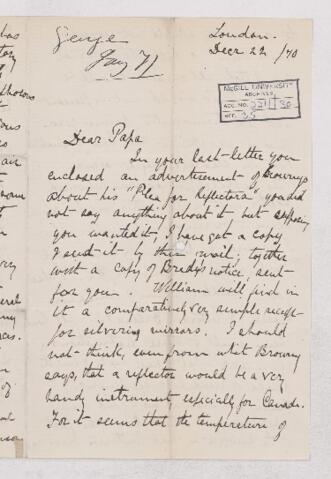 George
Jany 71
London.
Decr 22 /70
McGILL UNIVERSITY
ARCHIVES
ACC. NO.
REF. 35
Dear Papa
In your last letter you
enclosed an advertisement of Brownings
about his "Plea for Reflectors" you did
not say anything about it, but supposing
you wanted it I have got a copy
& send it by this mail; together
with a copy of notice, sent
for you. William will find in
it a comparatively very simple receipt
for silvering mirrors. I should
not think, even from what Browning
says, that a reflector would be a very
handy instrument especially for Canada.
For it seems that the temperature of